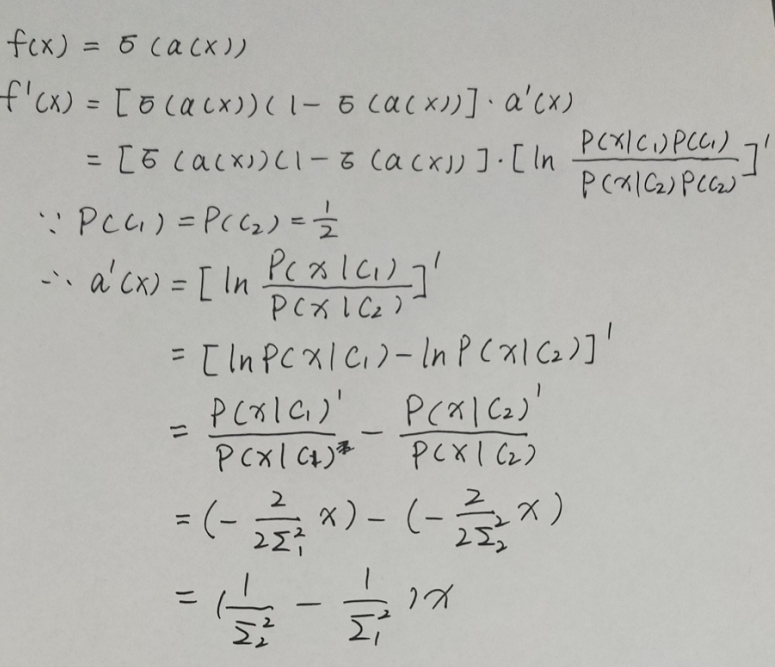 f(x) = σ(a(x))
f'(x) = [σ(a(x))(1 - σ(a(x))]·a'(x)
= [σ(a(x))(1 - σ(a(x))]·[ln P(x|C₁)P(C₁) / P(x|C₂)P(C₂)]'
∵ P(C₁) = P(C₂) = 1/2
∴ a'(x) = [ln P(x|C₁) / P(x|C₂)]'
= [ln P(x|C₁) - ln P(x|C₂)]'
= P(x|C₁)' / P(x|C₁) - P(x|C₂)' / P(x|C₂)
= (- 2/2Σ₁² x) - (- 2/2Σ₂² x)
= (1/Σ₂² - 1/Σ₁²)x